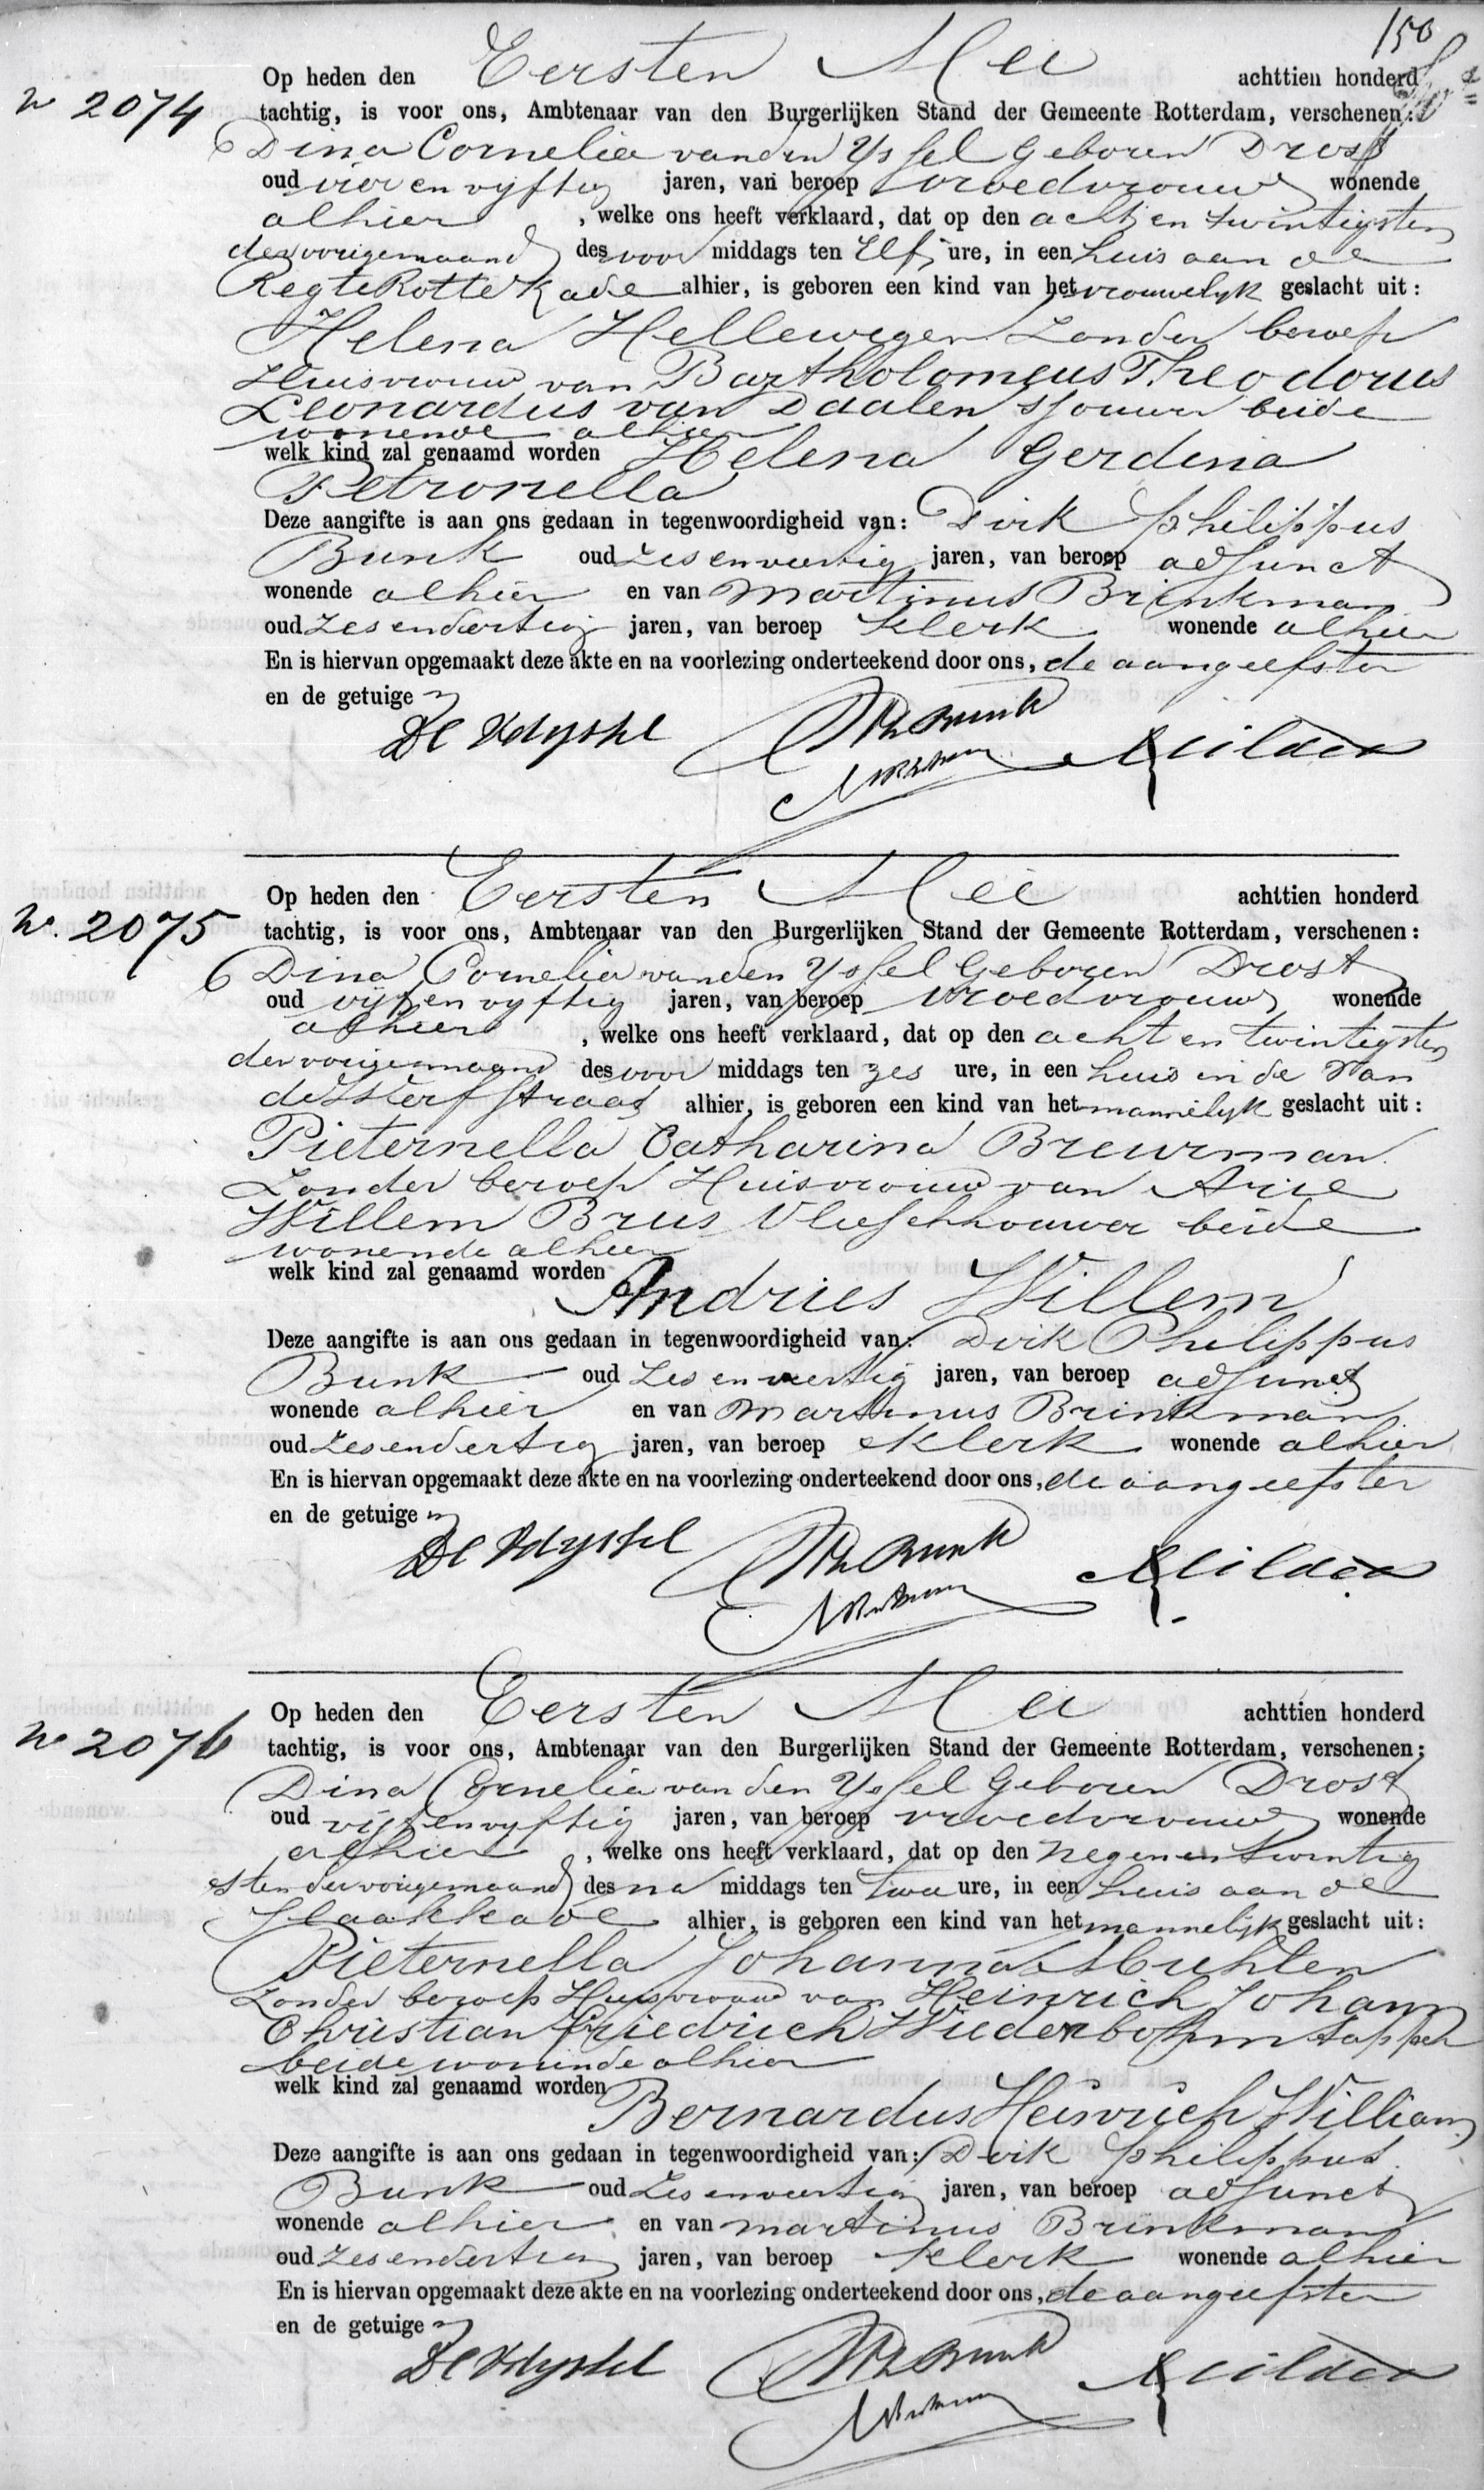 150
Op heden den Eersten Mei achttien honderd
No 2074
tachtig, is voor ons, Ambtenaar van den Burgerlijken Stand der Gemeente Rotterdam, verschenen:
Dina Cornelia van den Yssel geboren Drost
oud vier en vyftig jaren, van beroep vroedvrouw wonende
alhier , welke ons heeft verklaard, dat op den acht en twintigsten
der vorige maand des voor middags ten Elf ure, in een huis aan de
Regte Rotte Kade alhier, is geboren een kind van het vrouwelyk geslacht uit:
Helena Hellewegen Zonder beroep
Huisvrouw van Bartholomeus Theodorus
Leonardus van Daalen sjouwer beide
wonende alhier
welk kind zal genaamd worden Helena Gerdina
Petronella
Deze aangifte is aan ons gedaan in tegenwoordigheid van: Dirk Philippus
Bunk oud Zes en veertig jaren, van beroep adjunct
wonende alhier en van Martinus Brinkman
oud Zes en dertig jaren, van beroep Klerk wonende alhier
En is hiervan opgemaakt deze akte en na voorlezing onderteekend door ons, de aangeefster
en de getuigen
Op heden den Eersten Mei achttien honderd
No. 2075
tachtig, is voor ons, Ambtenaar van den Burgerlijken Stand der Gemeente Rotterdam, verschenen:
Dina Cornelia van den Yssel geboren Drost
oud vijf en vyftig jaren, van beroep vroedvrouw wonende
alhier , welke ons heeft verklaard, dat op den acht en twintigsten
der vorige maand des voor middags ten zes ure, in een huis in de Van
de Werf straat alhier, is geboren een kind van het mannelyk geslacht uit:
Pieternella Catharina Breurman
Zonder beroep Huisvrouw van Arie
Willem Brus Vleeschhouwer beide
wonende alhier
welk kind zal genaamd worden Andries Willem
Deze aangifte is aan ons gedaan in tegenwoordigheid van: Dirk Philippus
Bunk oud Zes en veertig jaren, van beroep adjunct
wonende alhier en van Martinus Brinkman
oud Zes en dertig jaren, van beroep Klerk wonende alhier
En is hiervan opgemaakt deze akte en na voorlezing onderteekend door ons, de aangeefster
en de getuigen
Op heden den Eersten Mei achttien honderd
No 2076
tachtig, is voor ons, Ambtenaar van den Burgerlijken Stand der Gemeente Rotterdam, verschenen:
Dina Cornelia van den Yssel geboren Drost
oud vijf en vyftig jaren, van beroep vroedvrouw wonende
alhier , welke ons heeft verklaard, dat op den negen en twintig
sten der vorige maand des na middags ten twee ure, in een huis aan de
Slaakkade alhier, is geboren een kind van het mannelijk geslacht uit:
Pieternella Johanna Muhlen
Zonder beroep Huisvrouw van Heinrich Johann
Christian Friedrich tapper
beide wonende alhier
welk kind zal genaamd worden Bernardus Heinrich William
Deze aangifte is aan ons gedaan in tegenwoordigheid van: Dirk Philippus
Bunk oud Zes en veertig jaren, van beroep adjunct
wonende alhier en van Martinus Brinkman
oud Zes en dertig jaren, van beroep Klerk wonende alhier
En is hiervan opgemaakt deze akte en na voorlezing onderteekend door ons, de aangeefster
en de getuigen